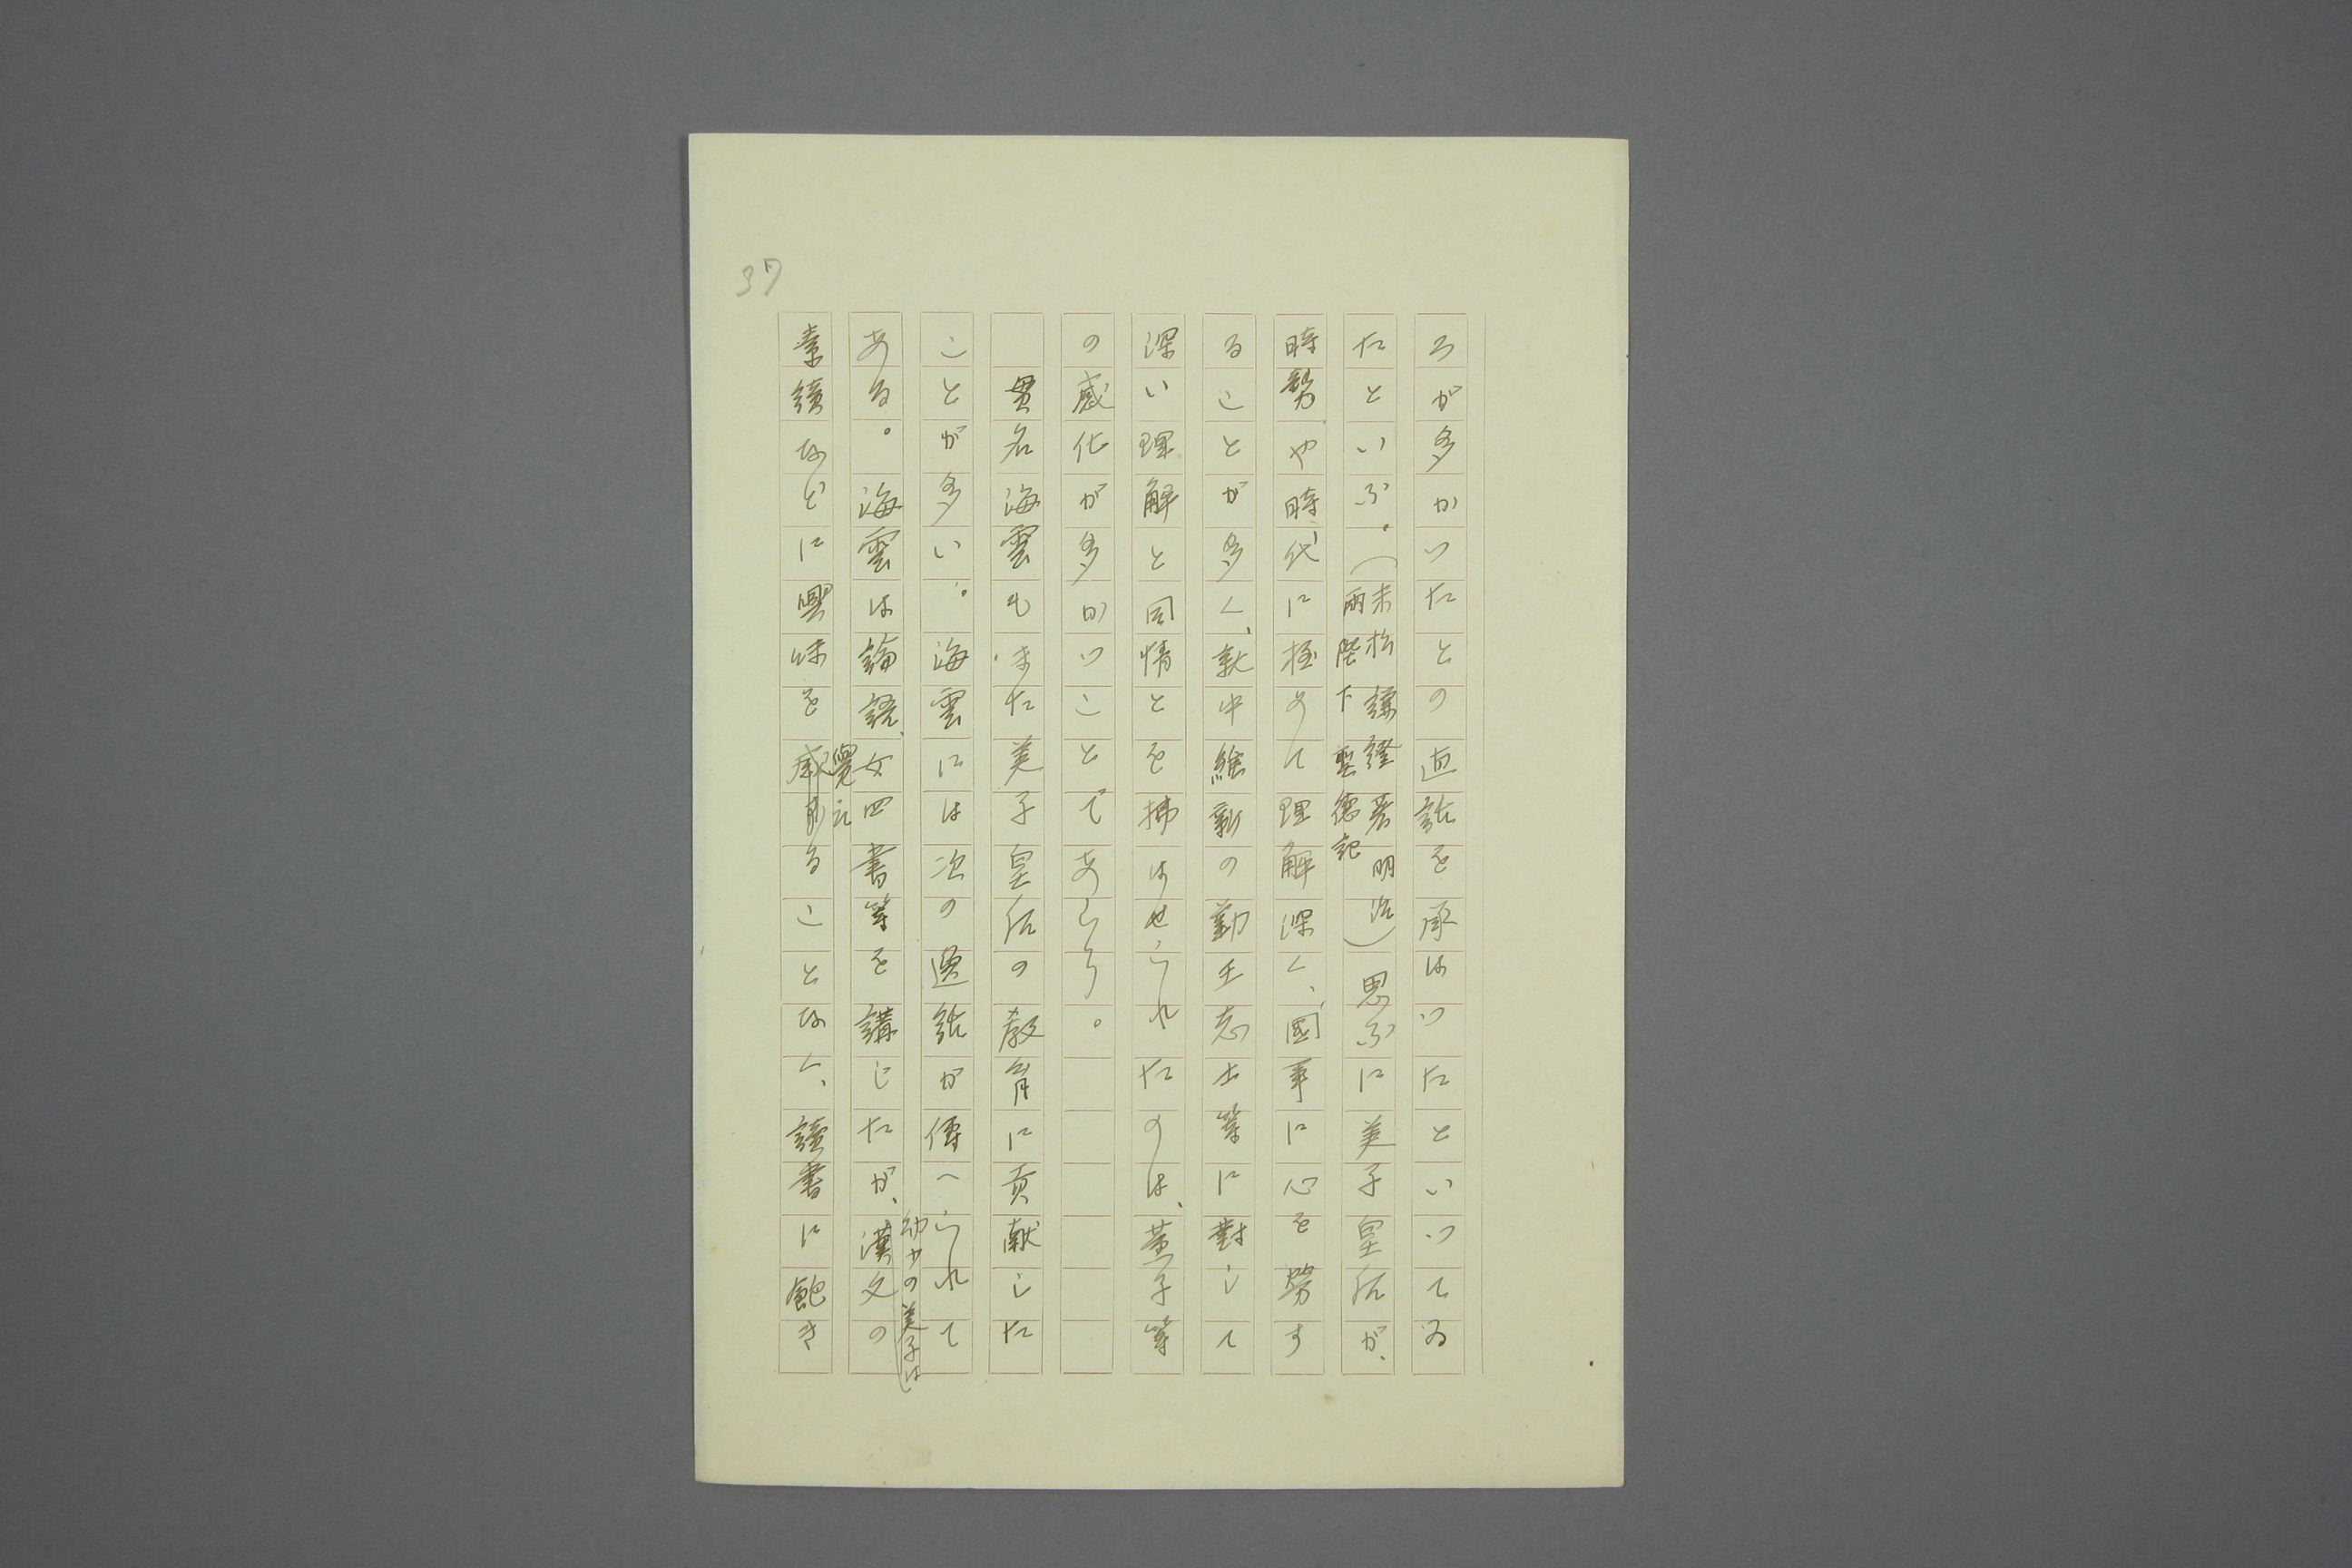 37
ろが多かつたとの追話を承はつたといつてゐ
たといふ。(末松謙澄著 明治両陛下聖徳記) 思ふに美子皇后が、
時勢や時代に極めて理解深く、國事に心を勞す
ることが多く、就中維新の勤王志士等に對して
深い理解と同情とを拂はせられたのは、薫子等
の感化が多かつことであらう。
貫名海雲もまた美子皇后の教育に貢献した
ことが多い。海雲には次の逸話が傳へられて
ある。海雲は論語、女四書等を講じたが、幼少の美子は漢文の
素讀などに興味を覺えることなく、讀書に飽き